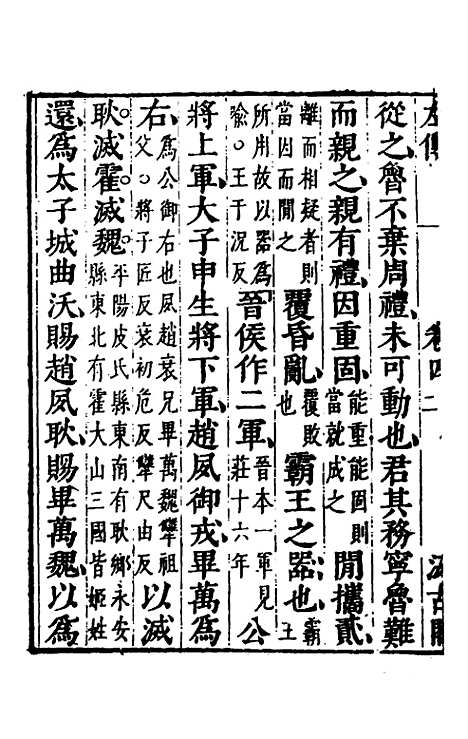 左傳 卷四 二 汲古閣
從之魯不棄周禮未可動也君其務寧魯難
而親之親有禮因重固能重能固則當就成之閒攜貳
離而相疑者則當因而閒之覆昏亂覆敗也霸王之器也霸王
所用故以器為喻○王于況反晉侯作二軍晉本一軍見莊十六年公
將上軍大子申生將下軍趙夙御戎畢萬為
右為公御右也夙趙衰兄畢萬魏犨祖父○將子匠反衰初危反犨尺由反以滅
耿滅霍滅魏平陽皮氏縣東南有耿鄉永安縣東北有霍大山三國皆姬姓
還為太子城曲沃賜趙夙耿賜畢萬魏以為